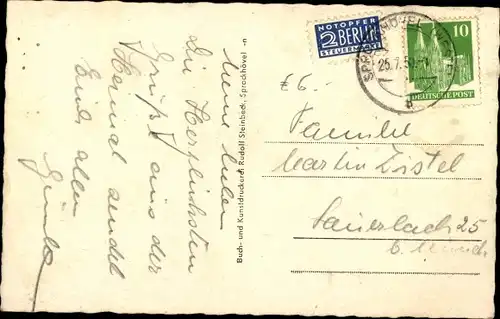 Meine Lieben
Die Herzlichsten
Grüße aus der
Heimat sendet
Euch allen
Günter
Buch- und Kunstdruckerei Rudolf Steinbeck, Sprockhövel -n
NOTOPFER
2 BERLIN
STEUERMARKE
SPROCKHÖVEL
25.7.5
10
DEUTSCHE POST
Familie
Martin Zistel
Sauerlach 25
b. München